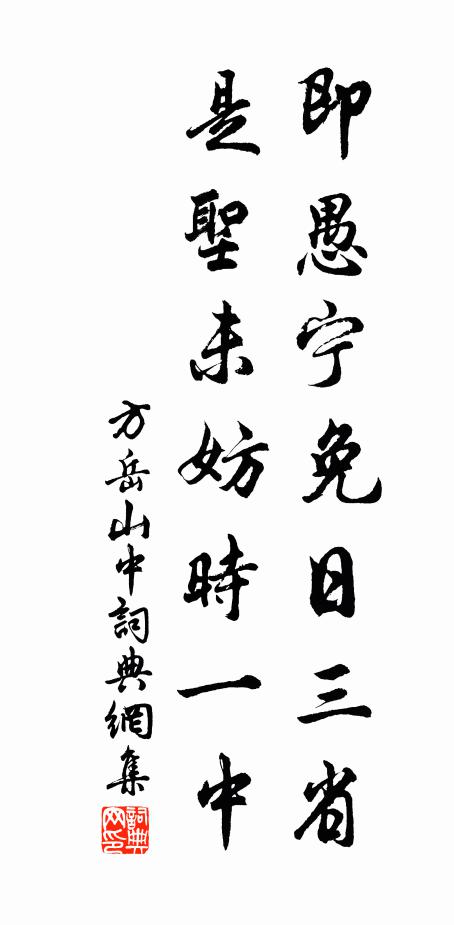 即愚宁免日三省
是聖未妨時一中
方岳山中詞典網集
詞典網印